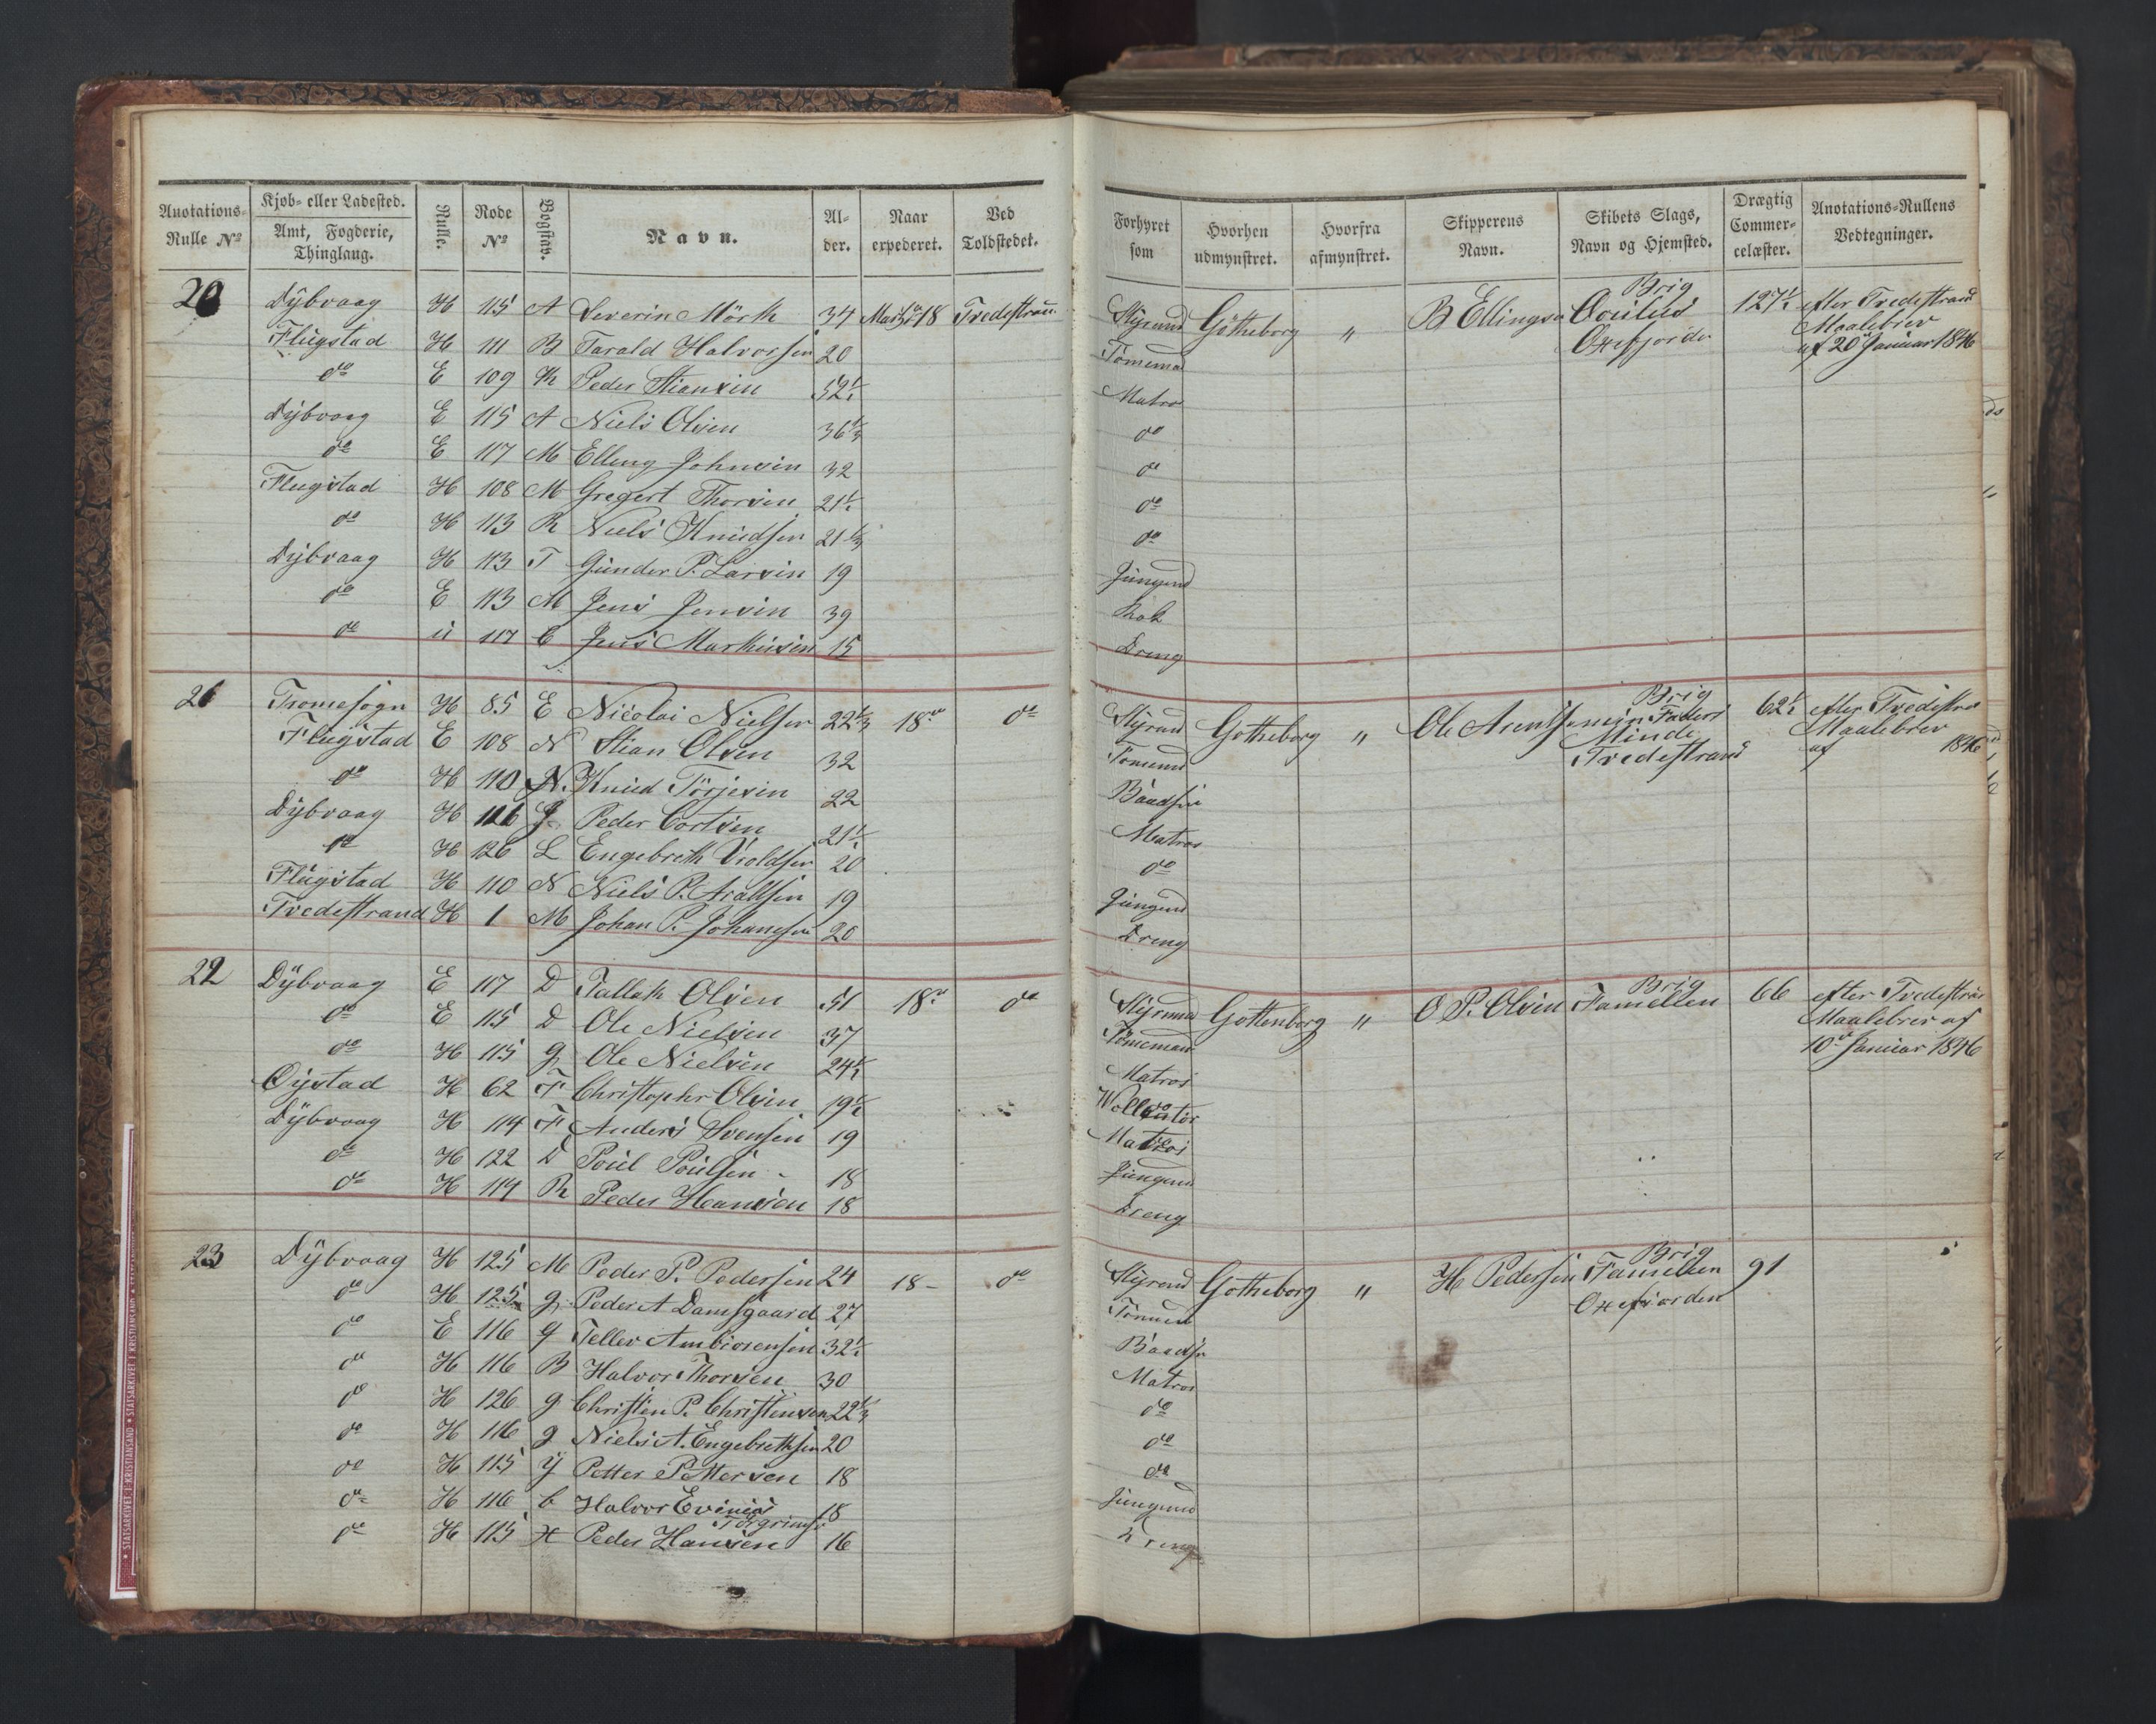 Anotations-Rulle № | Kjøb- eller Ladested. Amt, Fogderie, Thinglaug. | Rulle. | Rode № | Bogstav. | Navn. | Alder. | Naar expederet. | Ved Toldstedet. | Forhyret som | Hvorhen udmynstret. | Hvorfra afmynstret. | Skipperens Navn. | Skibets Slags, Navn og Hjemsted. | Drægtig Commercelæster. | Anotations-Rullens Vedtegninger.
20 Dÿbvaag H 115 A Severin Mörk 34 18 Tvedestran Stÿrmd Götheborg " B Ellingsen Brig 127½ efter Tvedestrand
Flügstad H 111 B Tarald Halvorsen 20 Tömemd Maalebrev
do E 109 K Peder Stiansen 52½ Matros af 20 Januar 1846
Dÿbvaag E 115 A Niels Olsen 36⅓ do
do E 117 M Elling Johnsen 32 do
Flugstad H 108 M Gregert Thorsen 21½ do
do H 113 R Niels Knudsen 21⅔ do
Dÿbvaag H 113 T Gunder P. Larsen 19 Jungmd
do E 113 M Jens Jensen 39 Kok
do ü 117 C Jens Markusen 15 Dreng
21 Tromøsogn H 85 E Nicolai Nielsen 22⅓ 18de do Stÿrmd Gotheborg " Ole Arentsen Brig min Faders Minde Tvedestrand 62½ efter Tvedestra
Flügstad E 108 N Stian Olsen 32 Tömmd Maalebrev
do H 110 N Knud Törjesen 22 Baadsm af 1846
Dÿbvaag H 126 J Peder Cortsen 21½ Matros
do H 126 L Engebreth Vroldsen 20 do
Flügstad H 110 N Niels P. Aralsen 19 Jungmd
Tvedestrand H 1 M Johan P. Johansen 20 Dreng
22 Dÿbvaag E 117 D Tallak Olsen 51 18de do Stÿrmd Gottenborg " O P. Olsen Brig Familien 66 efter Tvedestran
do E 115 D Ole Nielsen 37 Tömemand Maalebrev af
do H 115 G Ole Nielsen 24½ Matros 10de Januar 1846
Oÿstad H 62 F Christopher Olsen 19½
Dÿbvaag H 114 F Anders Svensen 19 Matros
do H 122 D Poul Poulsen 18 Jungmd
do H 114 R Peder Hansen 18 Dreng
23 Dÿbvaag H 125 M Peder P. Pedersen 24 18 do Stÿrmd Gotheborg " H Pedersen Brig Familien Oxefiorden 91
do H 125 G Peder A Damsgaard 27 Tömmd
do E 116 G Tellev Ambiorensen 32½ Baadsm
do H 116 B Halvor Thorsen 30 Matros
do H 126 G Christen P. Christensen 22⅓ do
do H 116 J Niels A. Engebrethsen 20 do
do H 115 Y Petter Pettersen 18 do
do H 116 C Halvor Evinias Torgrimsen 18 Jungmd
do H 115 H Peder Hansen 16 Dreng
STATSARKIVET I KRISTIANSAND * STATSARKIVET I KRISTIANSAND